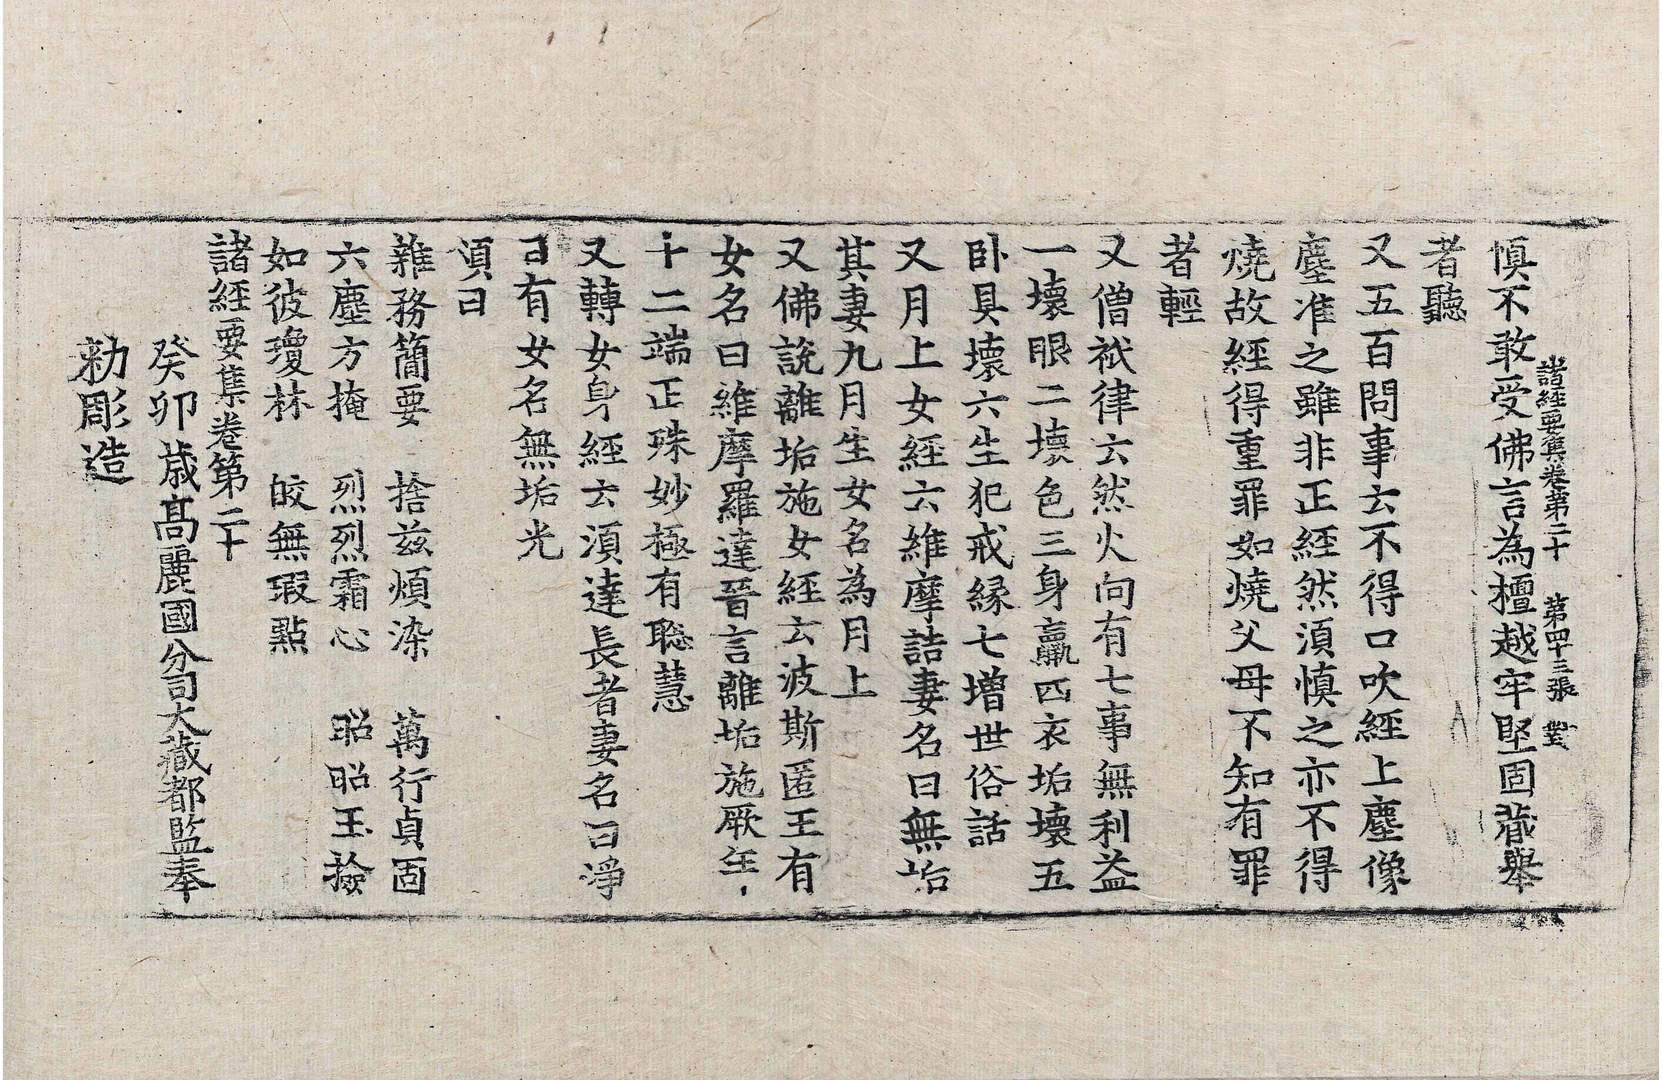 諸經要集卷第二十　第四十三張　對
愼不敢受佛言為檀越牢堅固藏舉
者聽
又五百問事云不得口吹經上塵像
塵准之雖非正經然須慎之亦不得
燒故經得重罪如燒父母不知有罪
者輕
又僧祇律云然火向有七事無利益
一壞眼二壞色三身羸四衣垢壞五
卧具壞六生犯戒緣七增世俗話
又月上女經云維摩詰妻名曰無垢
其妻九月生女名為月上
又佛說離垢施女經云波斯匿王有
女名曰維摩羅達晉言離垢施厥年
十二端正殊妙極有聡慧
又轉女身經云湏達長者妻名曰淨
日有女名無垢光
頌曰
雜務簡要　捨兹煩染　萬行貞固
六塵方掩　烈烈霜心　昭昭玉撿
如彼瓊林　皎無瑕點
諸經要集卷第二十
癸卯歲高麗國分司大藏都監奉
勑彫造